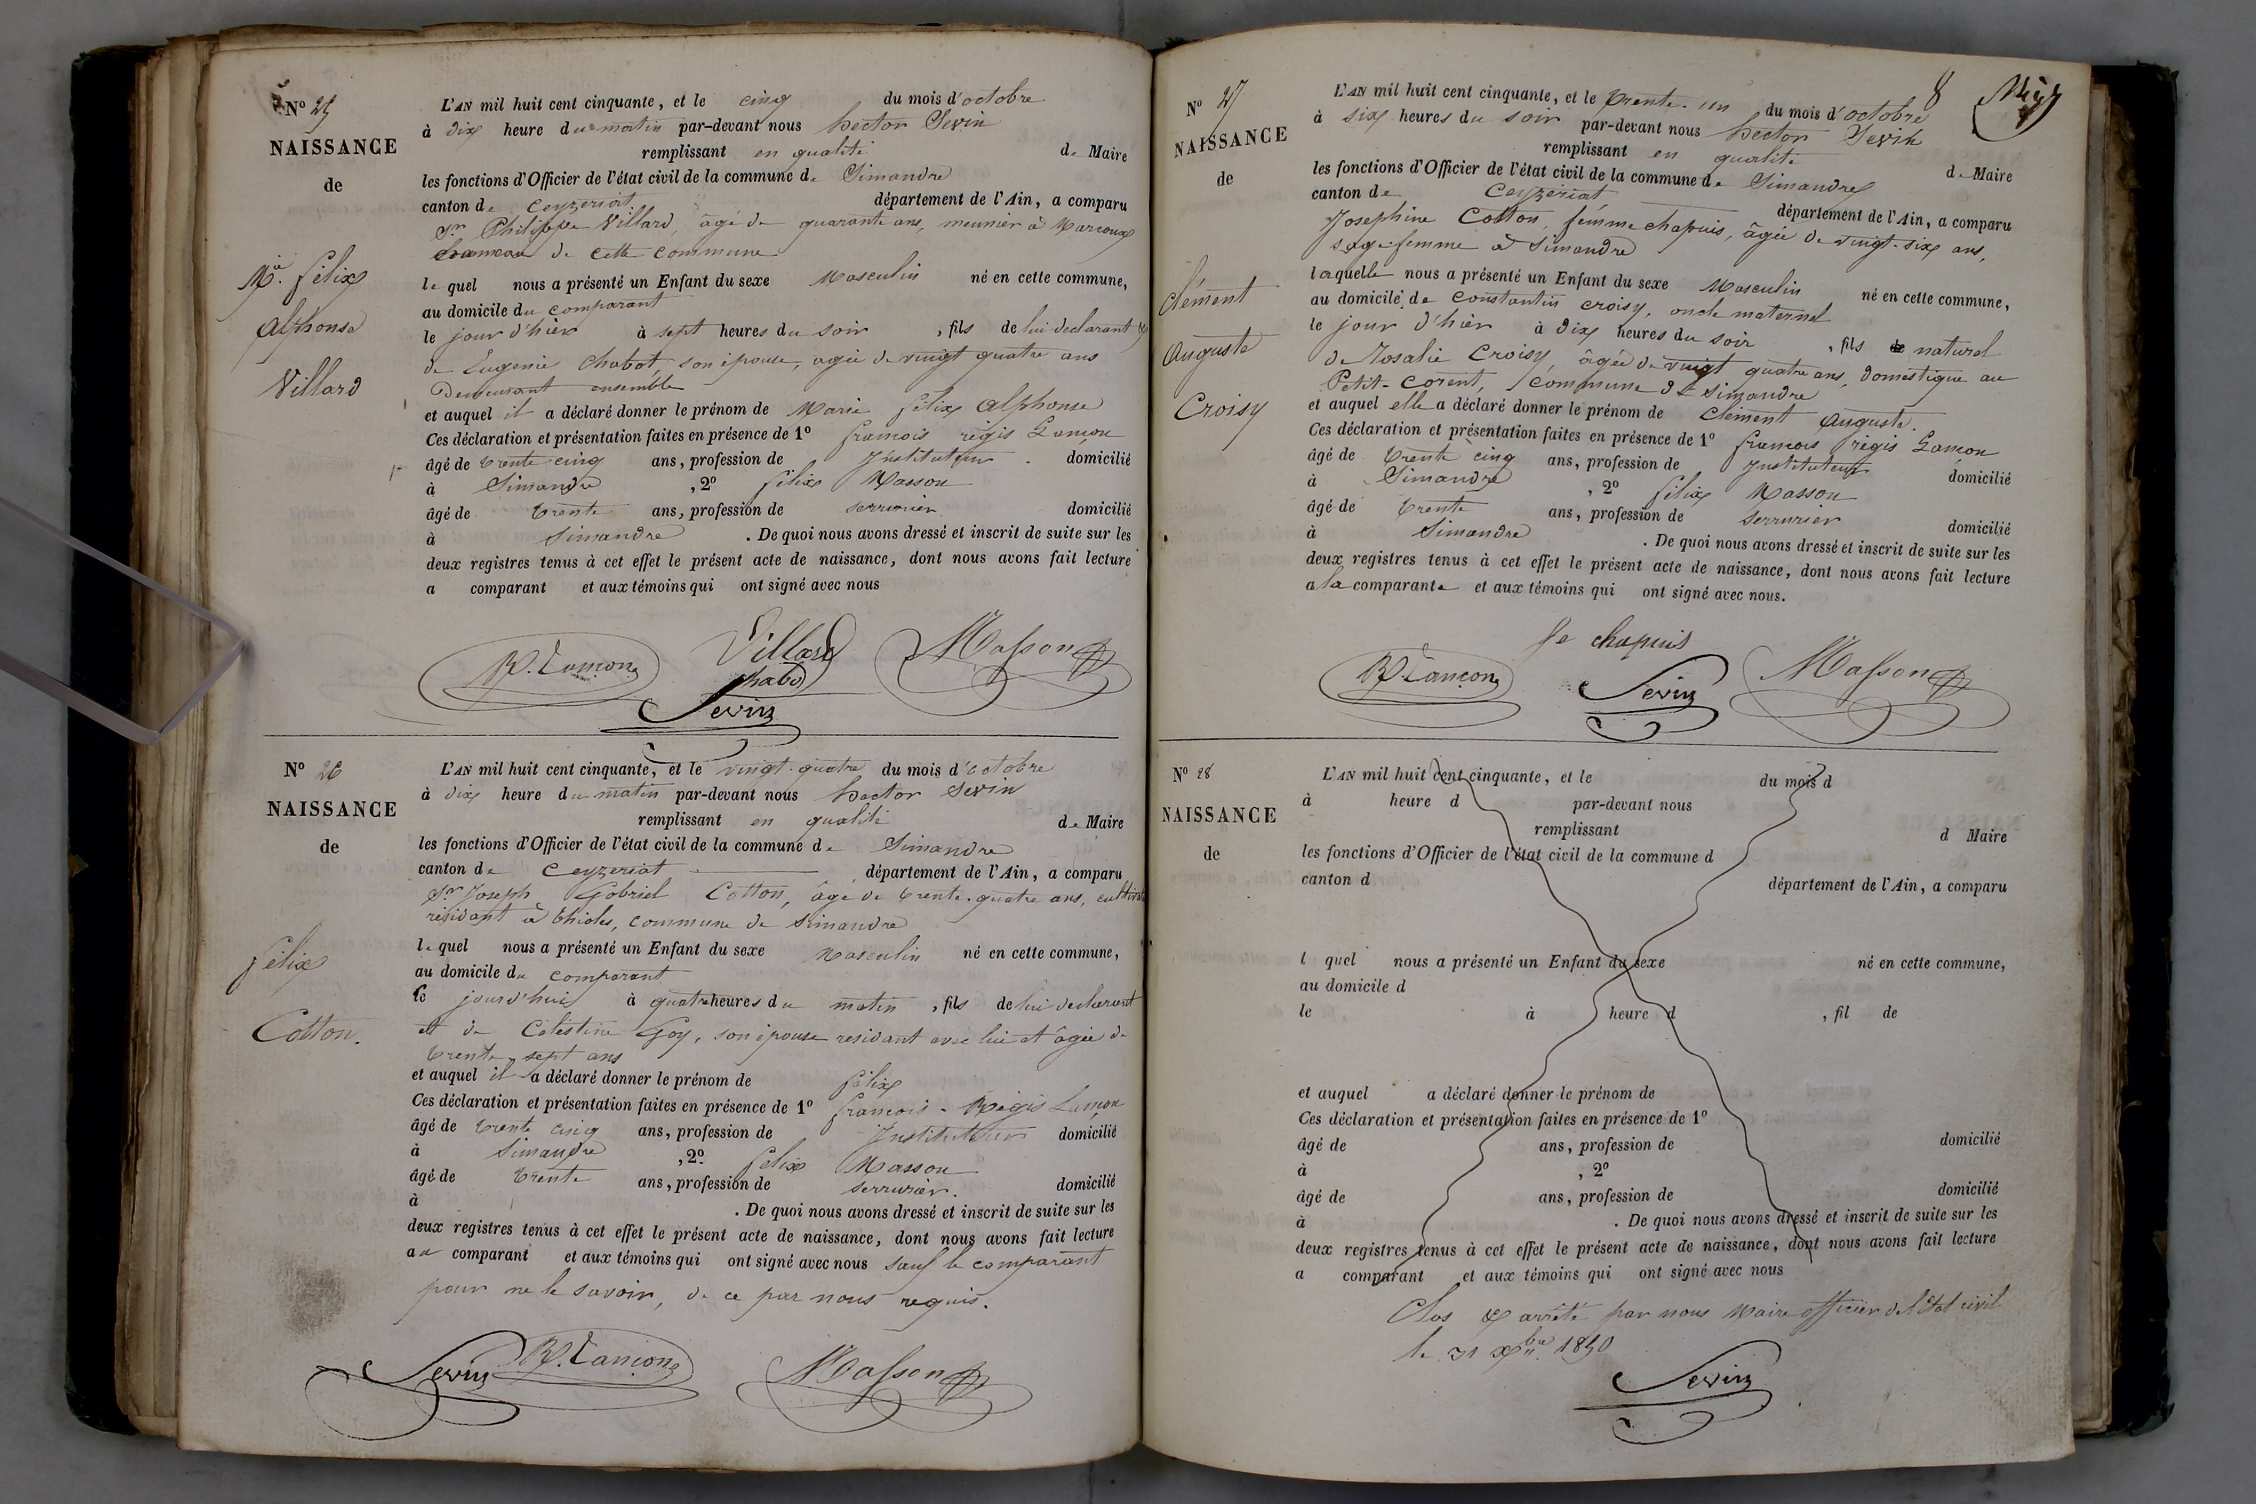 N° 25
NAISSANCE
de
Mie. Félix
Alphonse
Villard
L'AN mil huit cent cinquante, et le cinq du mois d'octobre
à dix heure du matin par-devant nous hector Sevin
remplissant en qualité de Maire
les fonctions d'Officier de l'état civil de la commune de Simandre
canton de Ceyzeriat département de l'Ain, a comparu
Sr Philippe Villard, âgé de quarante ans, meunier à
hameau de cette commune
lequel nous a présenté un Enfant du sexe Masculin né en cette commune,
au domicile du comparant
le jour d'hier à sept heures du soir, fils de lui declarant &
de Eugenie Chabot, son épouse, agée de vingt quatre ans
Demeurant ensemble
et auquel il a déclaré donner le prénom de Marie félix Alphonse
Ces déclaration et présentation faites en présence de 1° francois régis Lançon
âgé de trente cinq ans, profession de Instituteur domicilié
à Simandre, 2° félix Masson
âgé de trente ans, profession de serrurier domicilié
à Simandre. De quoi nous avons dressé et inscrit de suite sur les
deux registres tenus à cet effet le présent acte de naissance, dont nous avons fait lecture
a comparant et aux témoins qui ont signé avec nous
R. Lançon Villard Masson
chabo
Sevin
N° 26
NAISSANCE
de
félix
Cotton.
L'AN mil huit cent cinquante, et le vingt-quatre du mois d'octobre
à dix heure du matin par-devant nous hector Sevin
remplissant en qualité de Maire
les fonctions d'Officier de l'état civil de la commune de Simandre
canton de Ceyzeriat département de l'Ain, a comparu
Sr Joseph Gabriel Cotton, âgé de trente-quatre ans,
résidant à thioles, commune de Simandre
lequel nous a présenté un Enfant du sexe Masculin né en cette commune,
au domicile du comparant
le jourd'hui à quatre heures du matin, fils de lui declarant
et de Célestine Goy, son épouse résidant avec lui et âgée de
trente-sept ans
et auquel il a déclaré donner le prénom de félix
Ces déclaration et présentation faites en présence de 1° francois-Régis Lançon
âgé de trente cinq ans, profession de Instituteur domicilié
à Simandre, 2° félix Masson
âgé de trente ans, profession de serrurier. domicilié
à . De quoi nous avons dressé et inscrit de suite sur les
deux registres tenus à cet effet le présent acte de naissance, dont nous avons fait lecture
au comparant et aux témoins qui ont signé avec nous sauf le comparant
pour ne le savoir, de ce par nous requis.
Sevin R. Lançon Masson
8
N° 27
NAISSANCE
de
Clément
Auguste
Croisy
L'AN mil huit cent cinquante, et le trente-un du mois d'octobre
à six heures du soir par-devant nous hector Sevin
remplissant en qualité de Maire
les fonctions d'Officier de l'état civil de la commune de Simandre
canton de Ceyzeriat département de l'Ain, a comparu
Josephine Cotton, femme chapuis, âgée de vingt-six ans,
sage-femme à Simandre
laquelle nous a présenté un Enfant du sexe Masculin né en cette commune,
au domicile de Constantin Croisy, oncle maternel
le jour d'hier à dix heures du soir, fils de naturel
de Rosalie Croisy, âgée de vingt quatre ans, domestique au
Petit-Corent, commune de Simandre
et auquel elle a déclaré donner le prénom de Clément Auguste.
Ces déclaration et présentation faites en présence de 1° francois régis Lançon
âgé de trente cinq ans, profession de Instituteur domicilié
à Simandre, 2° félix Masson
âgé de trente ans, profession de serrurier domicilié
à Simandre. De quoi nous avons dressé et inscrit de suite sur les
deux registres tenus à cet effet le présent acte de naissance, dont nous avons fait lecture
a la comparante et aux témoins qui ont signé avec nous.
fe chapuis
R. Lançon Sevin Masson
N° 28
NAISSANCE
de
L'AN mil huit cent cinquante, et le du mois d
à heure d par-devant nous
remplissant d Maire
les fonctions d'Officier de l'état civil de la commune d
canton d département de l'Ain, a comparu
l quel nous a présenté un Enfant du sexe né en cette commune,
au domicile d
le à heure d , fil de
et auquel a déclaré donner le prénom de
Ces déclaration et présentation faites en présence de 1°
âgé de ans, profession de domicilié
à , 2°
âgé de ans, profession de domicilié
à . De quoi nous avons dressé et inscrit de suite sur les
deux registres tenus à cet effet le présent acte de naissance, dont nous avons fait lecture
a comparant et aux témoins qui ont signé avec nous
Clos & arrêté par nous Maire officier de l'état civil
le 31 Xbre 1850
Sevin